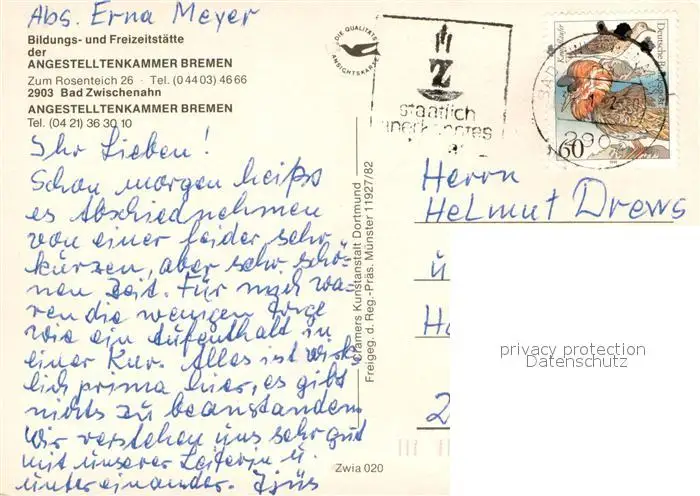 Abs. Erna Meyer
Bildungs- und Freizeitstätte
der
ANGESTELLTENKAMMER BREMEN
Zum Rosenteich 26 · Tel. (0 44 03) 46 66
2903 Bad Zwischenahn
ANGESTELLTENKAMMER BREMEN
Tel. (04 21) 36 30 10
Ihr Lieben!
Schon morgen heißt
es Abschiednehmen
von einer leider sehr
kurzen, aber sehr schö-
nen Zeit. Für mich wa-
ren die wenigen Tage
wie ein Aufenthalt in
einer Kur. Alles ist wirk-
lich prima hier, es gibt
nichts zu beanstanden.
Wir verstehen uns sehr gut
mit unserer Leiterin u.
untereinander. Tjüs
DIE QUALITÄTS
ANSICHTSKARTE
Z
staatlich
anerkanntes
BAD
290
Deutsche
60
Cramers Kunstanstalt Dortmund
Freigeg. d. Reg.-Präs. Münster 11927/82
Herrn
Helmut Drews
u
Ha
2
privacy protection
Datenschutz
Zwia 020